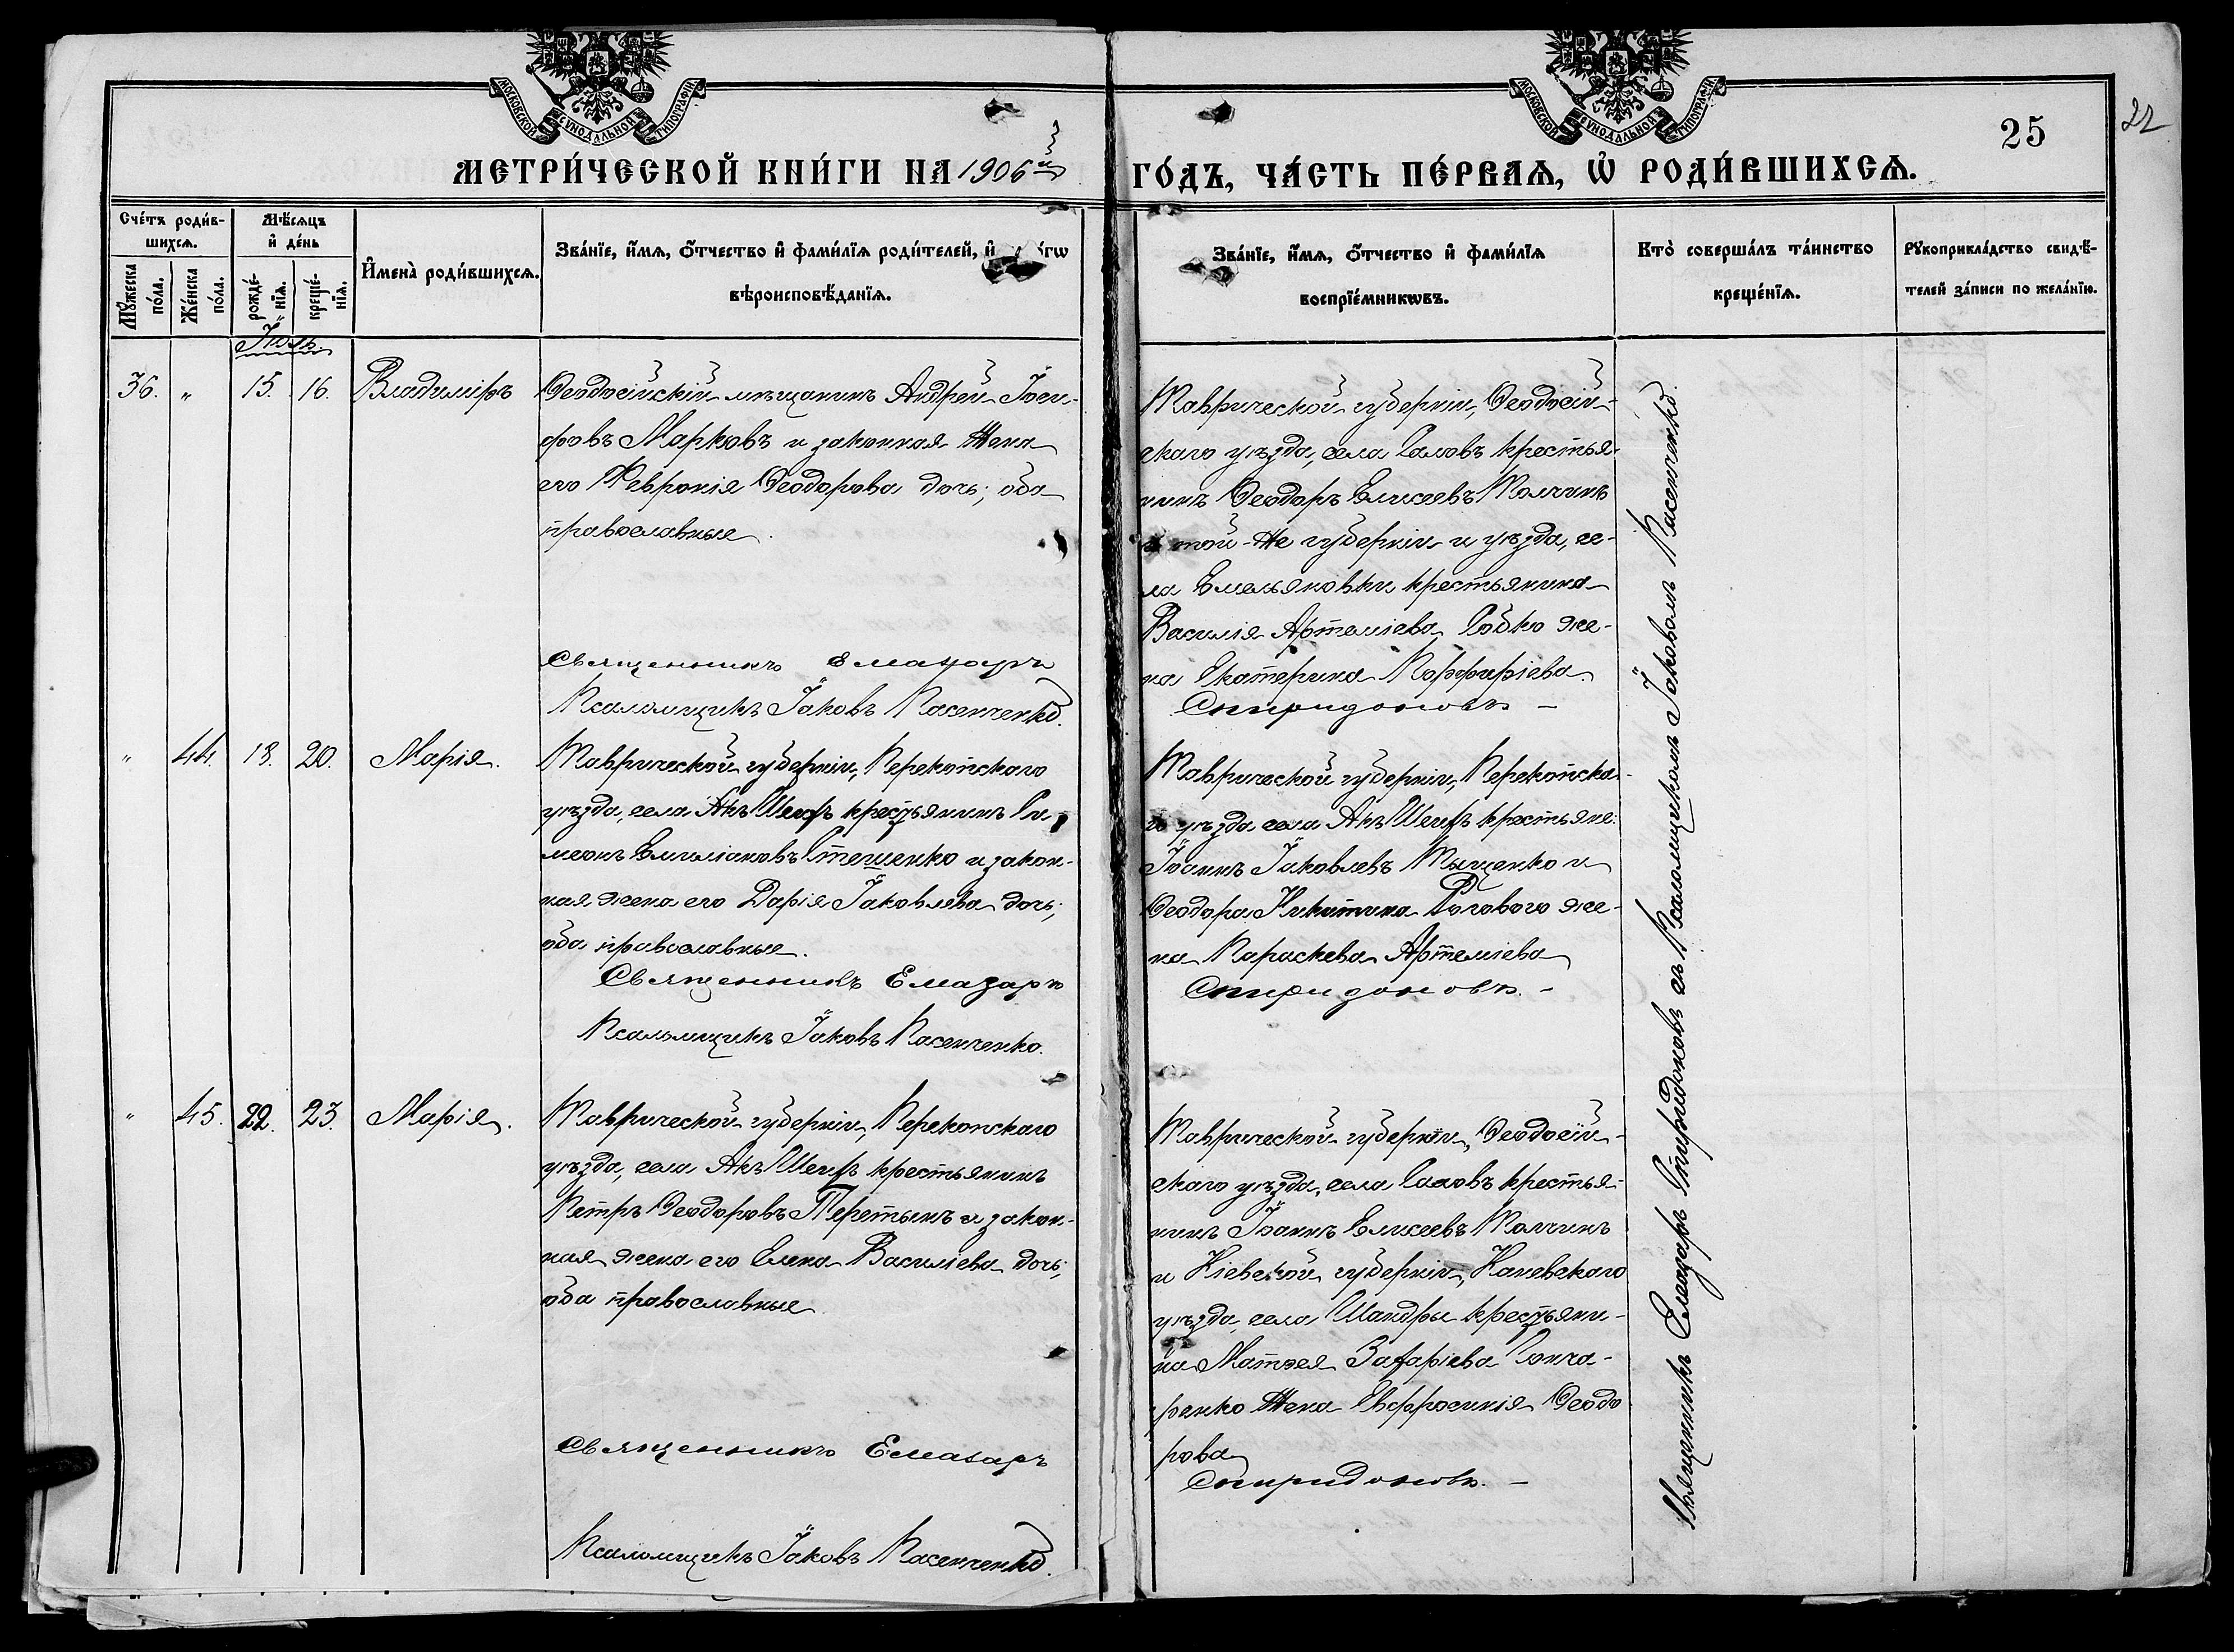 МОСКОВСКОЙ СѴНОДАЛЬНОЙ ТИПОГРАФІИ
МОСКОВСКОЙ СѴНОДАЛЬНОЙ ТИПОГРАФІИ
25
22
МЕТРИ́ЧЕСКОЙ КНИ́ГИ НА 1906й
ГО́ДЪ, ЧА́СТЬ ПЕ́РВАѦ, Ѡ҆ РОДИ́ВШИХСѦ.
Сче́тъ роди́в-
шихсѧ.
Мѣ́сѧцъ
и҆ де́нь
Мꙋ́жеска
по́ла.
Же́нска
по́ла.
рожде́-
нїѧ.
креще́-
нїѧ.
И҆мена̀ роди́вшихсѧ.
Зва́нїе, и҆́мѧ, ѻ҆́тчество и҆ фами́лїѧ роди́телей, и҆
вѣроисповѣ́данїѧ.
Зва́нїе, и҆́мѧ, ѻ҆́тчество и҆ фами́лїѧ
воспрїе́мникѡвъ.
Кто̀ соверша́лъ та́инство
креще́нїѧ.
Рꙋкоприкла́дство свидѣ́-
телей за́писи по жела́нїю.
Іюль.
36. " 15. 16. Владиміръ
Ѳеодосійскій мѣщанинъ Андрей Іоси-
фовъ Марковъ и законная жена
его Феѵронія Ѳеодорова дочь; оба
православные.
Священникъ Елеазаръ
Псаломщикъ Іаковъ Пасенченко.
Таврической губерніи, Ѳеодосій-
скаго уѣзда, села Саловъ крестья-
нинъ Ѳеодоръ Елисеевъ Толчинъ
и той-же губерніи и уѣзда, се-
ла Емельяновки крестьянина
Василія Артеміева Собко же-
на Екатерина Порфиріева.
Спиридоновъ. –
" 44. 18. 20. Марія.
Таврической губерніи, Перекопскаго
уѣзда, села Акъ Шеихъ крестьянинъ Си
меонъ Емиліановъ Стешенко и закон-
ная жена его Дарія Іаковлева дочь;
оба православные.
Священникъ Елеазаръ
Псаломщикъ Іаковъ Пасенченко.
Таврической губерніи, Перекопска-
го уѣзда села Акъ Шеихъ крестьяне:
Іоаннъ Іаковлевъ Тыщенко и
Ѳеодора Никитина Рогового же-
на Параскева Артеміева
Спиридоновъ. –
" 45. 22. 23. Марія.
Таврической губерніи, Перекопскаго
уѣзда, села Акъ Шеихъ крестьянинъ
Петръ Ѳеодоровъ Теретынъ и закон-
ная жена его Елена Василіева дочь;
оба православные
Священникъ Елеазаръ
Псаломщикъ Іаковъ Пасенченко.
Таврической губерніи, Ѳеодосій-
скаго уѣзда, села Саловъ крестья-
нинъ Іоаннъ Елисеевъ Толчинъ
и Кіевской губерніи, Каневскаго
уѣзда, села Шандры крестьяни-
на Матѳея Захаріева Гонча-
ренко жена Евфросинія Ѳеодо
рова
Спиридоновъ. –
Священникъ Елеазаръ Спиридоновъ съ Псаломщикомъ Іаковомъ Пасенченко.